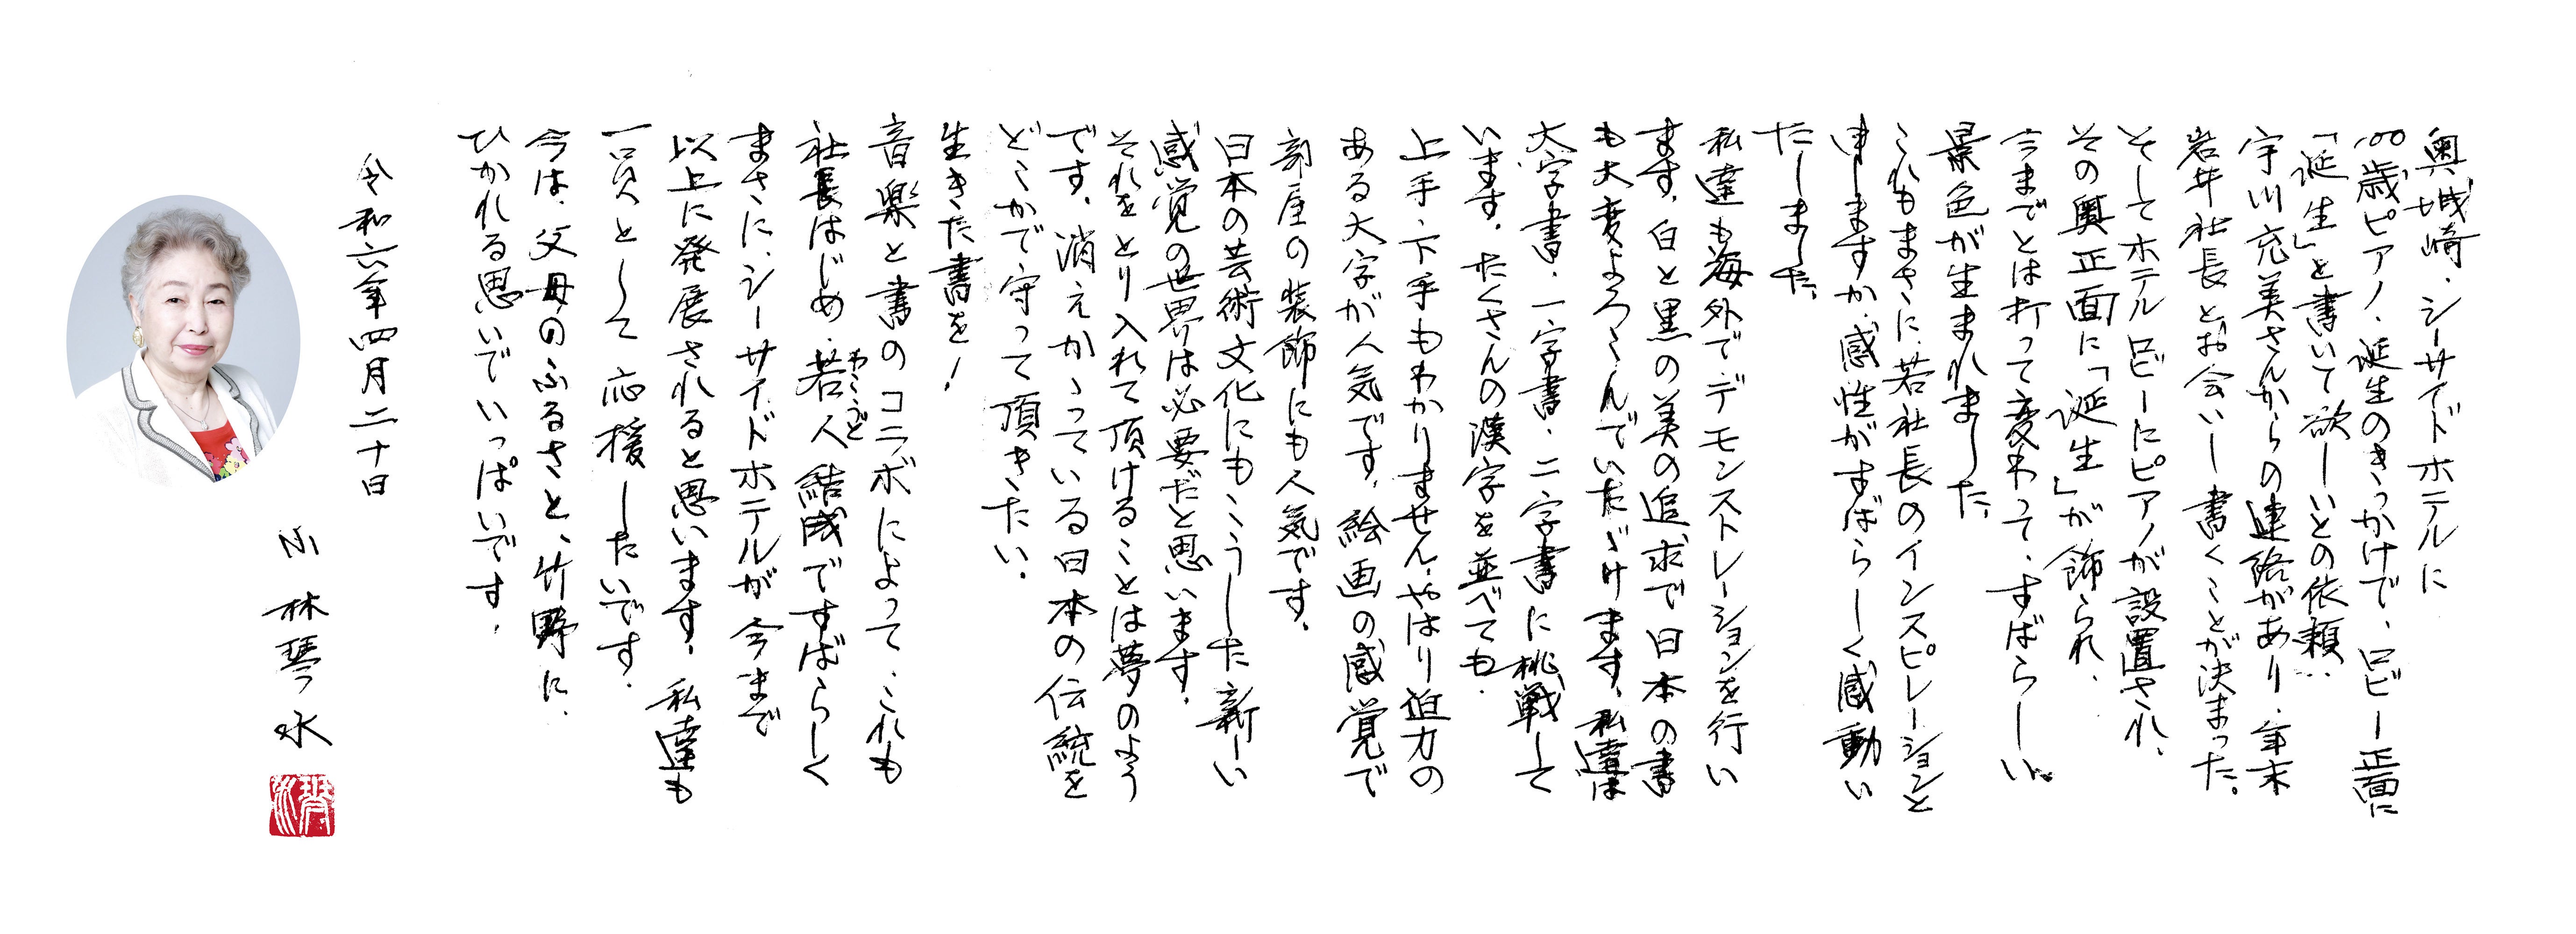 奥城崎・シーサイドホテルに
100歳ピアノ、誕生のきっかけで、ロビー正面に
「誕生」と書いて欲しいとの依頼…
宇川充美さんからの連絡があり、年末
岩井社長とお会いし書くことが決まった。
そしてホテルロビーにピアノが設置され、
その奥正面に「誕生」が飾られ、
今までとは打って変わって、すばらしい
景色が生まれました。
これもまさに若社長のインスピレーションと
申しますか、感性がすばらしく感動い
たしました。
私達も海外でデモンストレーションを行い
ます。白と黒の美の追求で日本の書
も大変よろこんでいただけます。私達は
大字書、一字書、二字書に挑戦して
います。たくさんの漢字を並べても、
上手、下手もわかりません。やはり迫力の
ある大字が人気です。絵画の感覚で
部屋の装飾にも人気です。
日本の芸術文化にもこうした新しい
感覚の世界は必要だと思います。
それをとり入れて頂けることは夢のよう
です。消えかかっている日本の伝統を
どこかで守って頂きたい。
生きた書を！
音楽と書のコラボによって、これも
社長はじめ、若人結成ですばらしく
わこうど
まさに、シーサイドホテルが今まで
以上に発展されると思います。私達も
一員として応援したいです。
今は、父母のふるさと、竹野に、
ひかれる思いでいっぱいです。
令和六年四月二十日
小林琴水
琴水